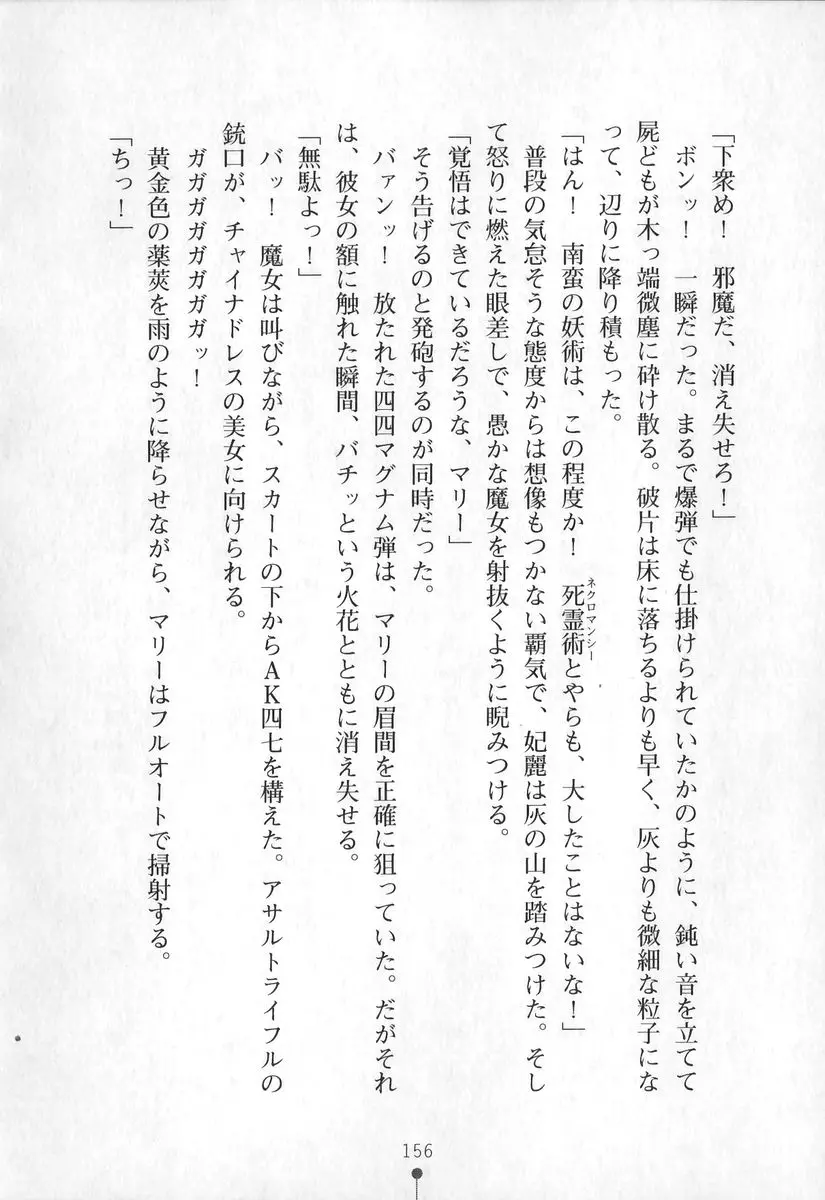 「下衆め！　邪魔だ、消え失せろ！」
　ボンッ！　一瞬だった。まるで爆弾でも仕掛けられていたかのように、鈍い音を立てて
屍どもが木っ端微塵に砕け散る。破片は床に落ちるよりも早く、灰よりも微細な粒子にな
って、辺りに降り積もった。
「はん！　南蛮の妖術は、この程度か！　死霊術とやらも、大したことはないな！」
ネクロマンシー
　普段の気怠そうな態度からは想像もつかない覇気で、妃麗は灰の山を踏みつけた。そし
て怒りに燃えた眼差しで、愚かな魔女を射抜くように睨みつける。
「覚悟はできているだろうな、マリー」
　そう告げるのと発砲するのが同時だった。
　バァンッ！　放たれた四四マグナム弾は、マリーの眉間を正確に狙っていた。だがそれ
は、彼女の額に触れた瞬間、バチッという火花とともに消え失せる。
「無駄よっ！」
　バッ！　魔女は叫びながら、スカートの下からＡＫ四七を構えた。アサルトライフルの
銃口が、チャイナドレスの美女に向けられる。
　ガガガガガガガガッ！
　黄金色の薬莢を雨のように降らせながら、マリーはフルオートで掃射する。
「ちっ！」
156